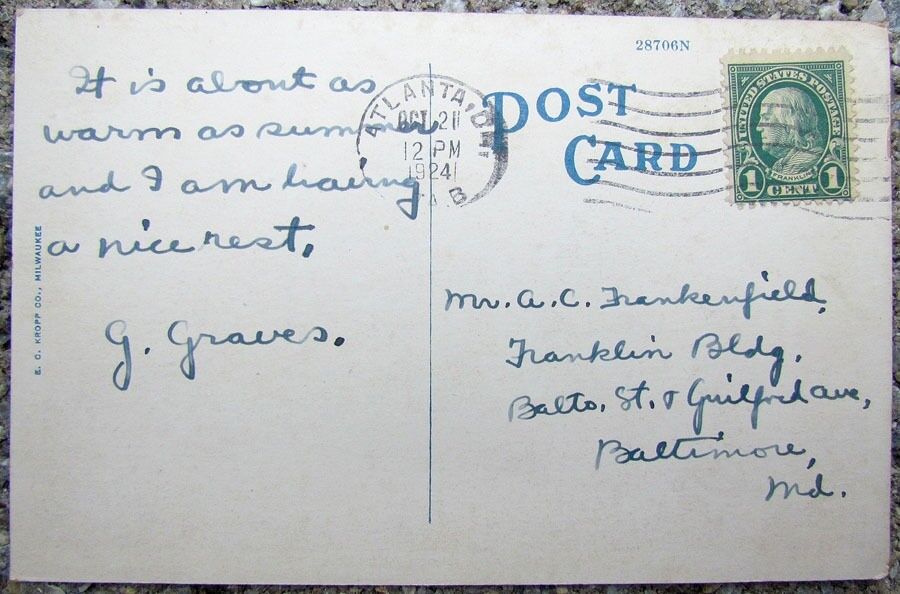 28706N
POST
CARD
UNITED STATES POSTAGE
FRANKLIN
1 CENT 1
ATLANTA,
OCT 21
12 PM
1924
It is about as
warm as summer
and I am having
a nice rest.
G. Graves.
Mr. A. C. Frankenfield,
Franklin Bldg.
Balto. St. & Guilford ave,
Baltimore,
Md.
E. C. KROPP CO., MILWAUKEE